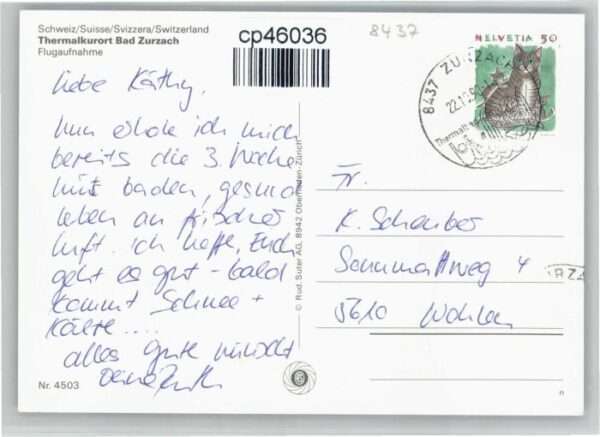 Schweiz/Suisse/Svizzera/Switzerland
Thermalkurort Bad Zurzach
Flugaufnahme
cp46036
8437
HELVETIA 50
8437 ZURZACH
22.10.9
Thermalb
liebe Käthy,
Nun erhole ich mich
bereits die 3. Woche
mit baden, gesund
leben an frischer
Luft. ich hoffe, Euch
geht es gut - bald
kommt Schnee +
Kälte....
alles gute wünscht
deine Ruth
© Rud. Suter AG, 8942 Oberrieden-Zürich
Fr.
K. Schenber
Sonnmattweg 4
5610 Wohlen
RZA
Nr. 4503